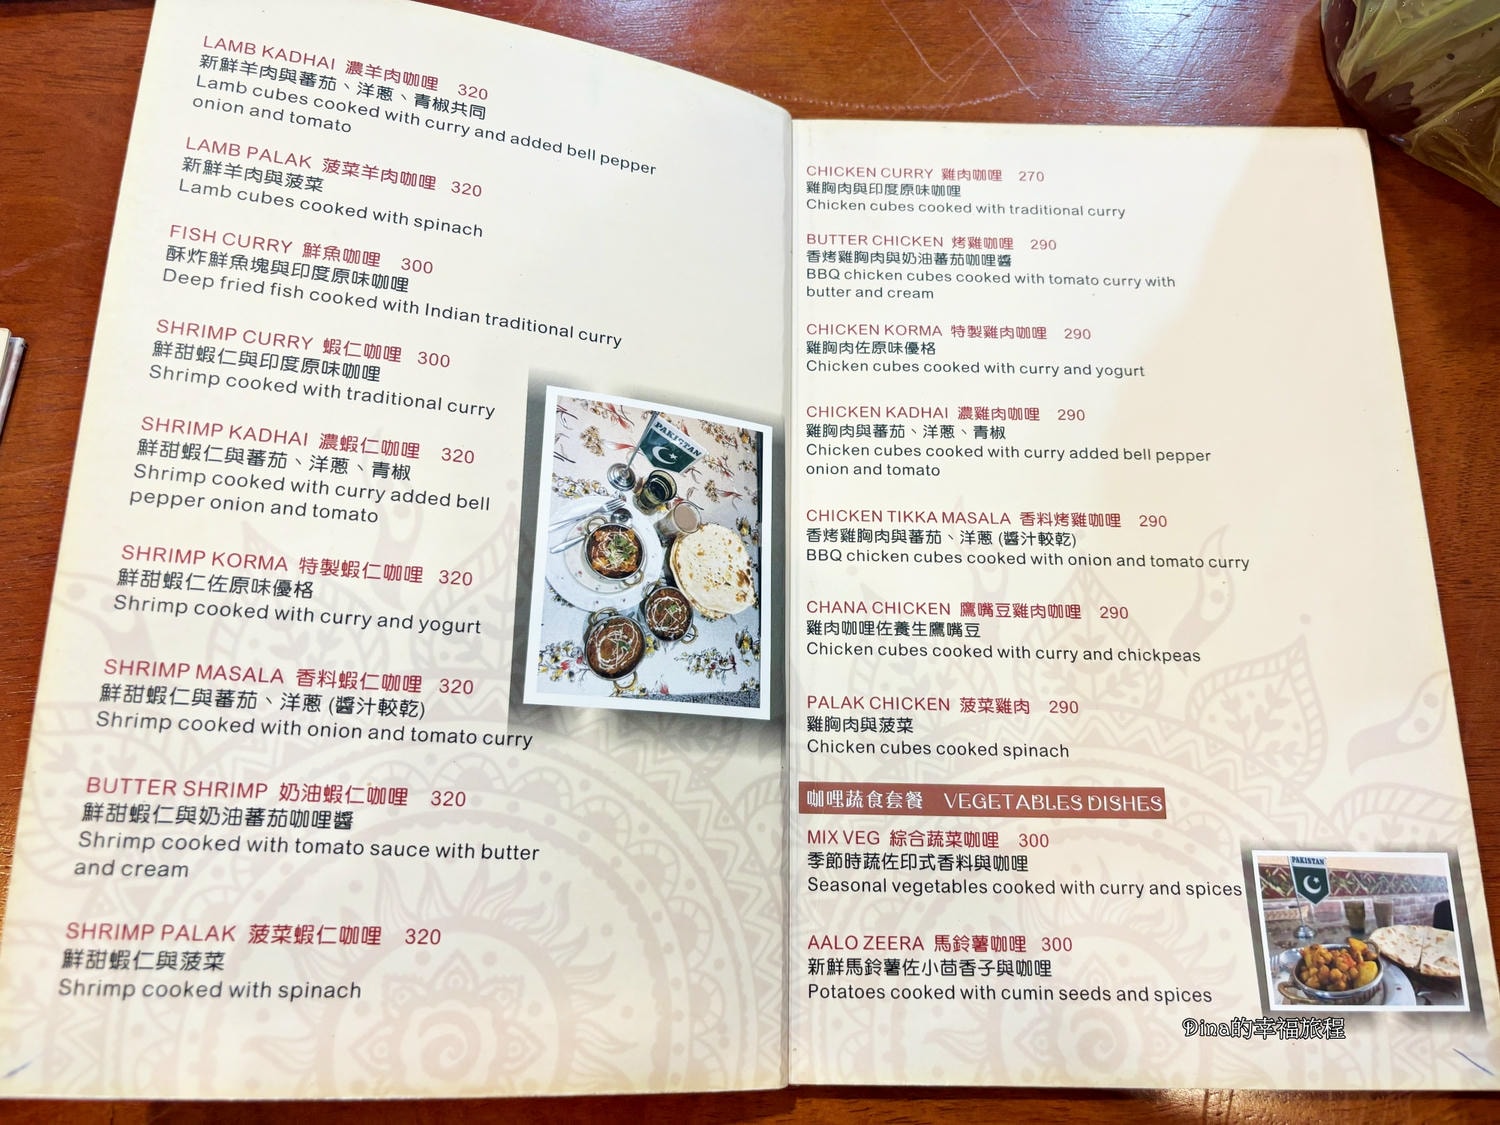 LAMB KADHAI 濃羊肉咖哩 320
新鮮羊肉與蕃茄、洋蔥、青椒共同
Lamb cubes cooked with curry and added bell pepper
onion and tomato
LAMB PALAK 菠菜羊肉咖哩 320
新鮮羊肉與菠菜
Lamb cubes cooked with spinach
FISH CURRY 鮮魚咖哩 300
酥炸鮮魚塊與印度原味咖哩
Deep fried fish cooked with Indian traditional curry
SHRIMP CURRY 蝦仁咖哩 300
鮮甜蝦仁與印度原味咖哩
Shrimp cooked with traditional curry
SHRIMP KADHAI 濃蝦仁咖哩 320
鮮甜蝦仁與蕃茄、洋蔥、青椒
Shrimp cooked with curry added bell
pepper onion and tomato
SHRIMP KORMA 特製蝦仁咖哩 320
鮮甜蝦仁佐原味優格
Shrimp cooked with curry and yogurt
SHRIMP MASALA 香料蝦仁咖哩 320
鮮甜蝦仁與蕃茄、洋蔥 (醬汁較乾)
Shrimp cooked with onion and tomato curry
BUTTER SHRIMP 奶油蝦仁咖哩 320
鮮甜蝦仁與奶油蕃茄咖哩醬
Shrimp cooked with tomato sauce with butter
and cream
SHRIMP PALAK 菠菜蝦仁咖哩 320
鮮甜蝦仁與菠菜
Shrimp cooked with spinach
PAKISTAN
CHICKEN CURRY 雞肉咖哩 270
雞胸肉與印度原味咖哩
Chicken cubes cooked with traditional curry
BUTTER CHICKEN 烤雞咖哩 290
香烤雞胸肉與奶油蕃茄咖哩醬
BBQ chicken cubes cooked with tomato curry with
butter and cream
CHICKEN KORMA 特製雞肉咖哩 290
雞胸肉佐原味優格
Chicken cubes cooked with curry and yogurt
CHICKEN KADHAI 濃雞肉咖哩 290
雞胸肉與蕃茄、洋蔥、青椒
Chicken cubes cooked with curry added bell pepper
onion and tomato
CHICKEN TIKKA MASALA 香料烤雞咖哩 290
香烤雞胸肉與蕃茄、洋蔥 (醬汁較乾)
BBQ chicken cubes cooked with onion and tomato curry
CHANA CHICKEN 鷹嘴豆雞肉咖哩 290
雞肉咖哩佐養生鷹嘴豆
Chicken cubes cooked with curry and chickpeas
PALAK CHICKEN 菠菜雞肉 290
雞胸肉與菠菜
Chicken cubes cooked spinach
咖哩蔬食套餐 VEGETABLES DISHES
MIX VEG 綜合蔬菜咖哩 300
季節時蔬佐印式香料與咖哩
Seasonal vegetables cooked with curry and spices
AALO ZEERA 馬鈴薯咖哩 300
新鮮馬鈴薯佐小茴香子與咖哩
Potatoes cooked with cumin seeds and spices
PAKISTAN
Dina的幸福旅程